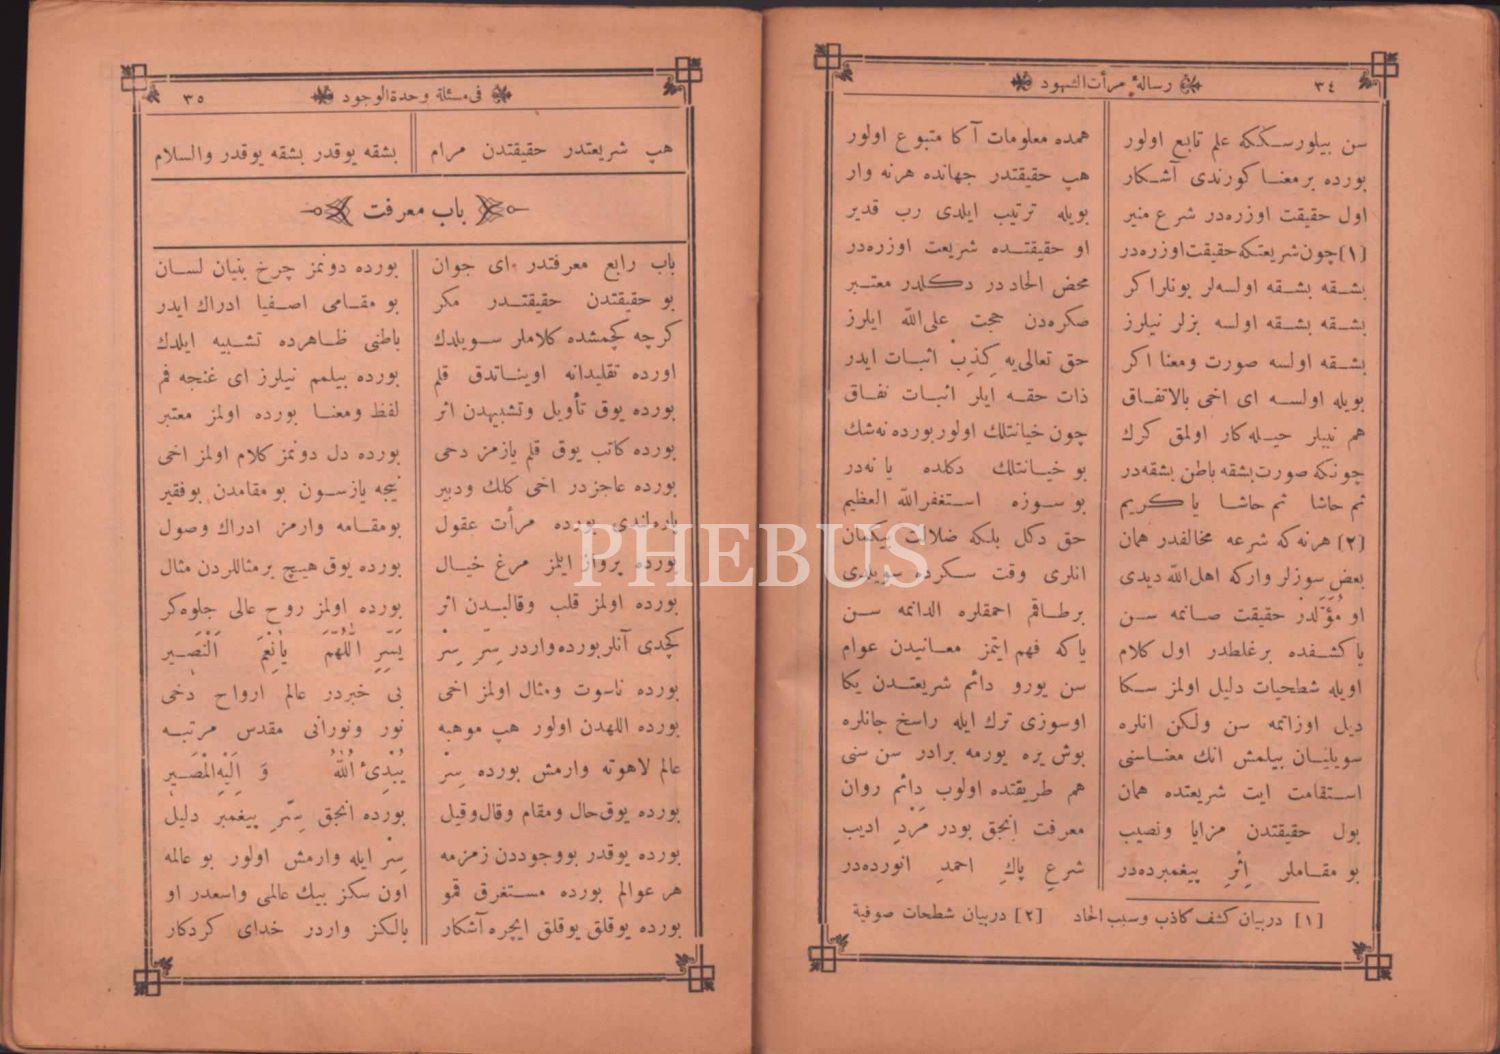 ٣٤ رسالۀ مرأت الشهود
سن بيلورسكه علم تابع اولور همده معلومات آكا متبوع اولور
بورده بر معنا كورندى آشكار هپ حقيقتدر جهانده هرنه وار
اول حقيقت اوزره‌در شرع منير بويله ترتيب ايلدى رب قدير
[١] چون شريعتكه حقيقت اوزره‌در او حقيقتده شريعت اوزره‌در
بشقه بشقه اولسه‌لر بونلر اكر محض الحاددر دكلدر معتبر
بشقه بشقه اولسه بزلر نيلرز صكره‌دن حجت على الله ايلرز
بشقه اولسه صورت ومعنا اكر حق تعالى‌يه كِذبْ اثبات ايدر
بويله اولسه اى اخى بالاتفاق ذات حقه ايلر اثبات نفاق
هم نبيلر حيله‌كار اولمق كرك چون خيانتلك اولور بورده نه‌شك
چونكه صورت بشقه باطن بشقه‌در بو خيانتلك دكلده يا نه‌در
ثم حاشا ثم حاشا يا كريم بو سوزه استغفر الله العظيم
[٢] هرنه كه شرعه مخالفدر همان حق دكل بلكه ضلالت بيكمان
بعض سوزلر واركه اهل الله ديدى انلرى وقت سكرده سويلدى
او مُؤَلدرْ حقيقت صانمه سن برطاقم احمقلره الدانمه سن
يا كشفده بر غلطدر اول كلام ياكه فهم ايتمز معانيدن عوام
اويله شطحيات دليل اولمز سكا سن يورو دائم شريعتدن يكا
ديل اوزاتمه سن ولكن انلره اوسوزى ترك ايله راسخ جانلره
سويليان بيلمش انك معناسنى بوش يره يورمه برادر سن سنى
استقامت ايت شريعتده همان هم طريقتده اولوب دائم روان
بول حقيقتدن مزايا ونصيب معرفت انجق بودر مَرْدِ اديب
بو مقاملر اِثْرِ پيغمبرده‌در شرعِ پاكِ احمدِ انورده‌در
[١] دربيان كشف كاذب وسبب الحاد [٢] دربيان شطحات صوفية
فى مسئلة وحدة الوجود ٣٥
هپ شريعتدر حقيقتدن مرام بشقه يوقدر بشقه يوقدر والسلام
باب معرفت
باب رابع معرفتدر اى جوان بورده دونمز چرخ بنيان لسان
بو حقيقتدن حقيقتدر مكر بو مقامى اصفيا ادراك ايدر
كرچه كچمشده كلاملر سويلدك باطنى ظاهرده تشبيه ايلدك
اورده تقليدانه اويناتدق قلم بورده بيلمم نيلرز اى غنجه فم
بورده يوق تأويل وتشبيهدن اثر لفظ ومعنا بورده اولمز معتبر
بورده كاتب يوق قلم يازمز دخى بورده دل دونمز كلام اولمز اخى
بورده عاجزدر اخى كلك ودبير نيجه يازسون بو مقامدن بو فقير
پاره‌لندى بورده مرأت عقول بو مقامه وارمز ادراك وصول
بورده پرواز ايلمز مرغ خيال بورده يوق هيچ بر مثاللردن مثال
بورده اولمز قلب وقالبدن اثر بورده اولمز روح عالى جلوه‌كر
كچدى آنلر بورده واردر سِرِّ سِرّ يَسِّرِ اَللّٰهُمَّ يَا نِعْمَ اَلْنَصِير
بورده ناسوت ومثال اولمز اخى بى خبردر عالم ارواح دخى
بورده اللهدن اولور هپ موهبه نور ونورانى مقدس مرتبه
عالم لاهوته وارمش بورده سِرْ يُبْدِئُ اللّٰهُ وَ اِلَيْهِ الْمَصِير
بورده يوق حال ومقام وقال وقيل بورده انجق سِرِّ پيغمبر دليل
بورده يوقدر بو وجوددن زمزمه سِرّ ايله وارمش اولور بو عالمه
هر عوالم بورده مستغرق قمو اون سكز بيك عالمى واسعدر او
بورده يوقلق يوقلق ايچره آشكار يالكز واردر خداى كردكار
PHEBUS